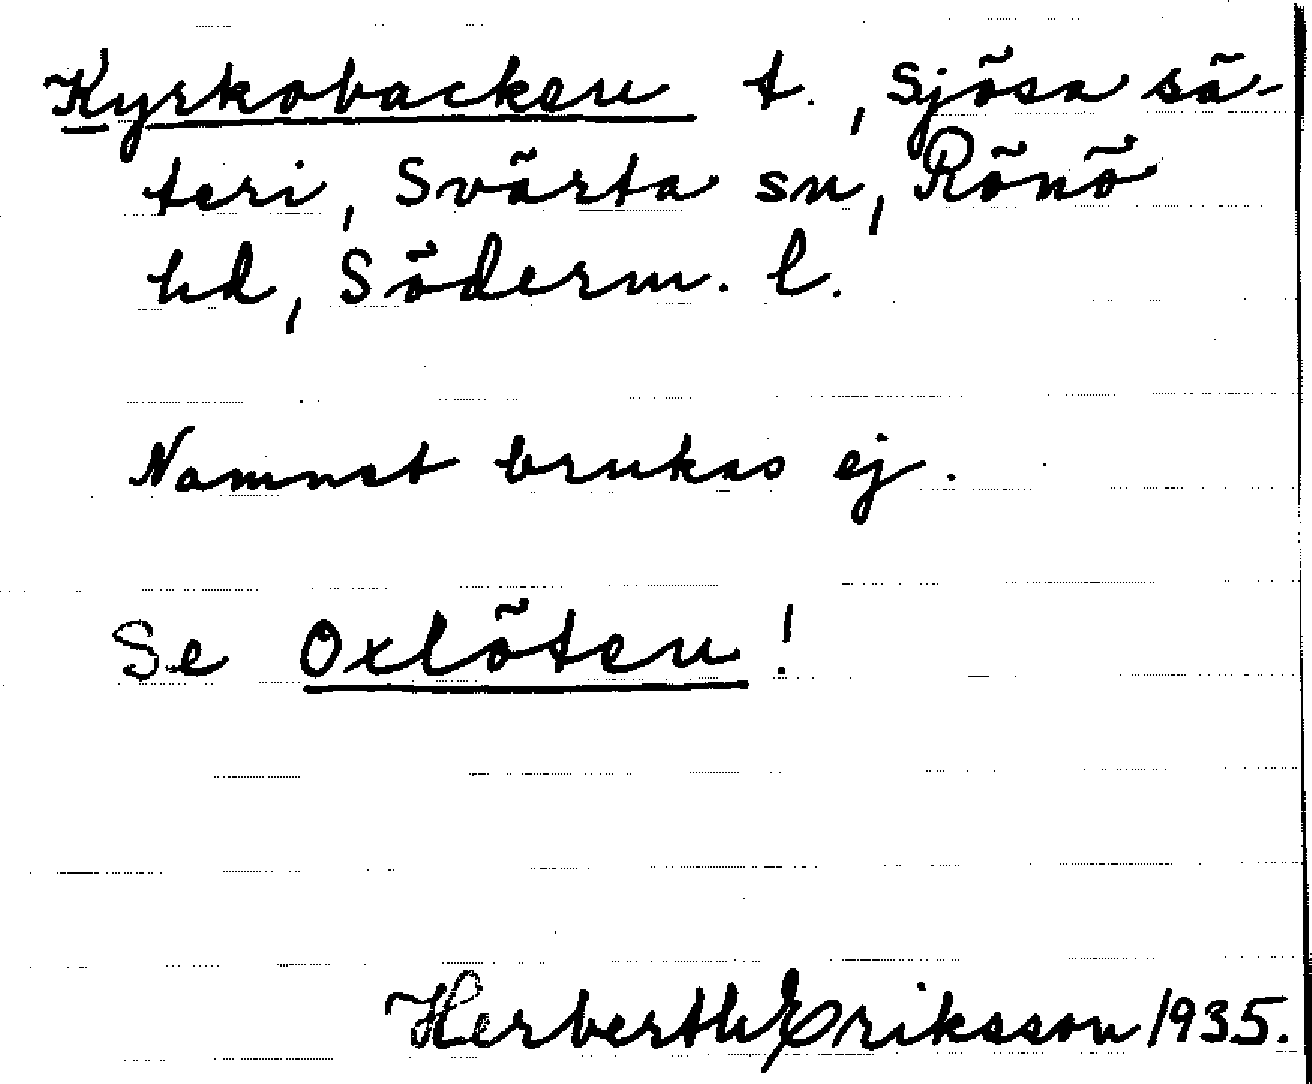 Kyrkobacken t., Sjösa sä-
teri, Svärta sn, Rönö
hd, Söderm. l.
Namnet brukas ej.
Se Oxlöten!
Herberth Eriksson 1935.